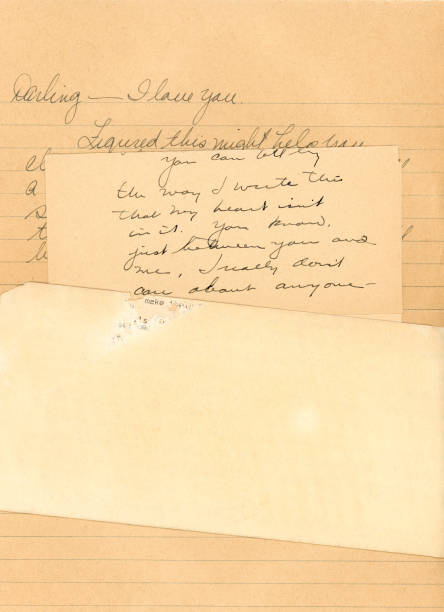 Darling — I love you.
Figured this might help you
you can tell by
the way I write this
that my heart isn't
in it. You know,
just between you and
me, I really don't
care about anyone—
meke